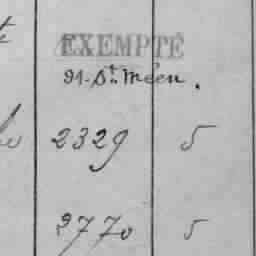 EXEMPTÉ
91-St. Méen.
2329 5
2770 5